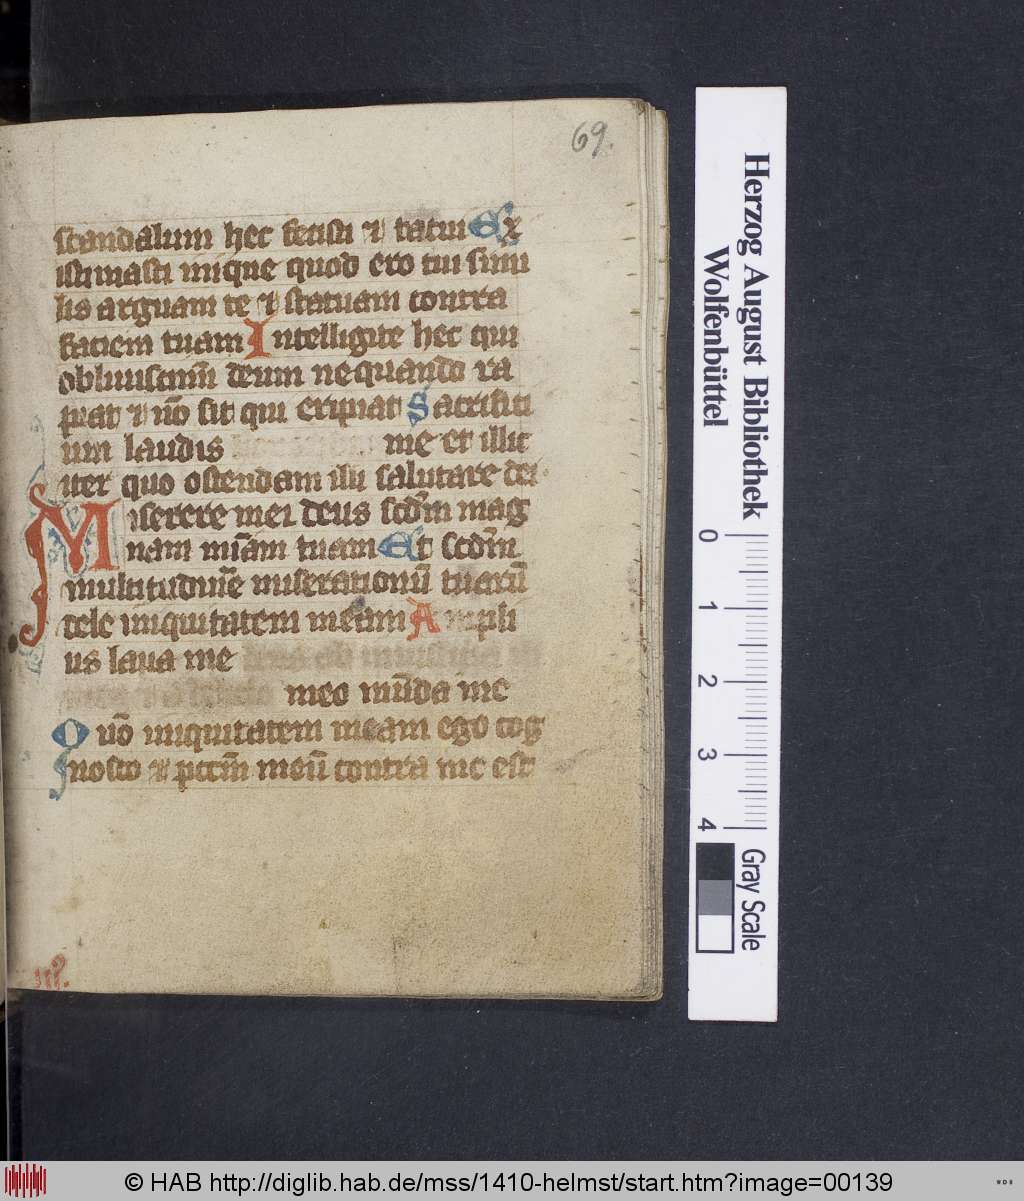 69.
scandalum hec fecisti ⁊ tacui Ex
istimasti inique quod ero tui simi
lis arguam te ⁊ statuam contra
faciem tuam Intelligite hec qui
obliuiscimī deum nequando ra
piat ⁊ nō sit qui eripiat Sacrifici
um laudis me et illic
iter quo ostendam illi salutare dei
Miserere mei deus scdm̄ mag
nam miā̄m tuam Et scdm̄
multitudinē miserationū tuarū
dele iniquitatem meam Ampli
us laua me
meo mūda me
Qn̄o iniquitatem meam ego cog
nosco ⁊ pctm̄ meū contra me est
Herzog August Bibliothek
Wolfenbüttel
0 1 2 3 4
Gray Scale
© HAB http://diglib.hab.de/mss/1410-helmst/start.htm?image=00139